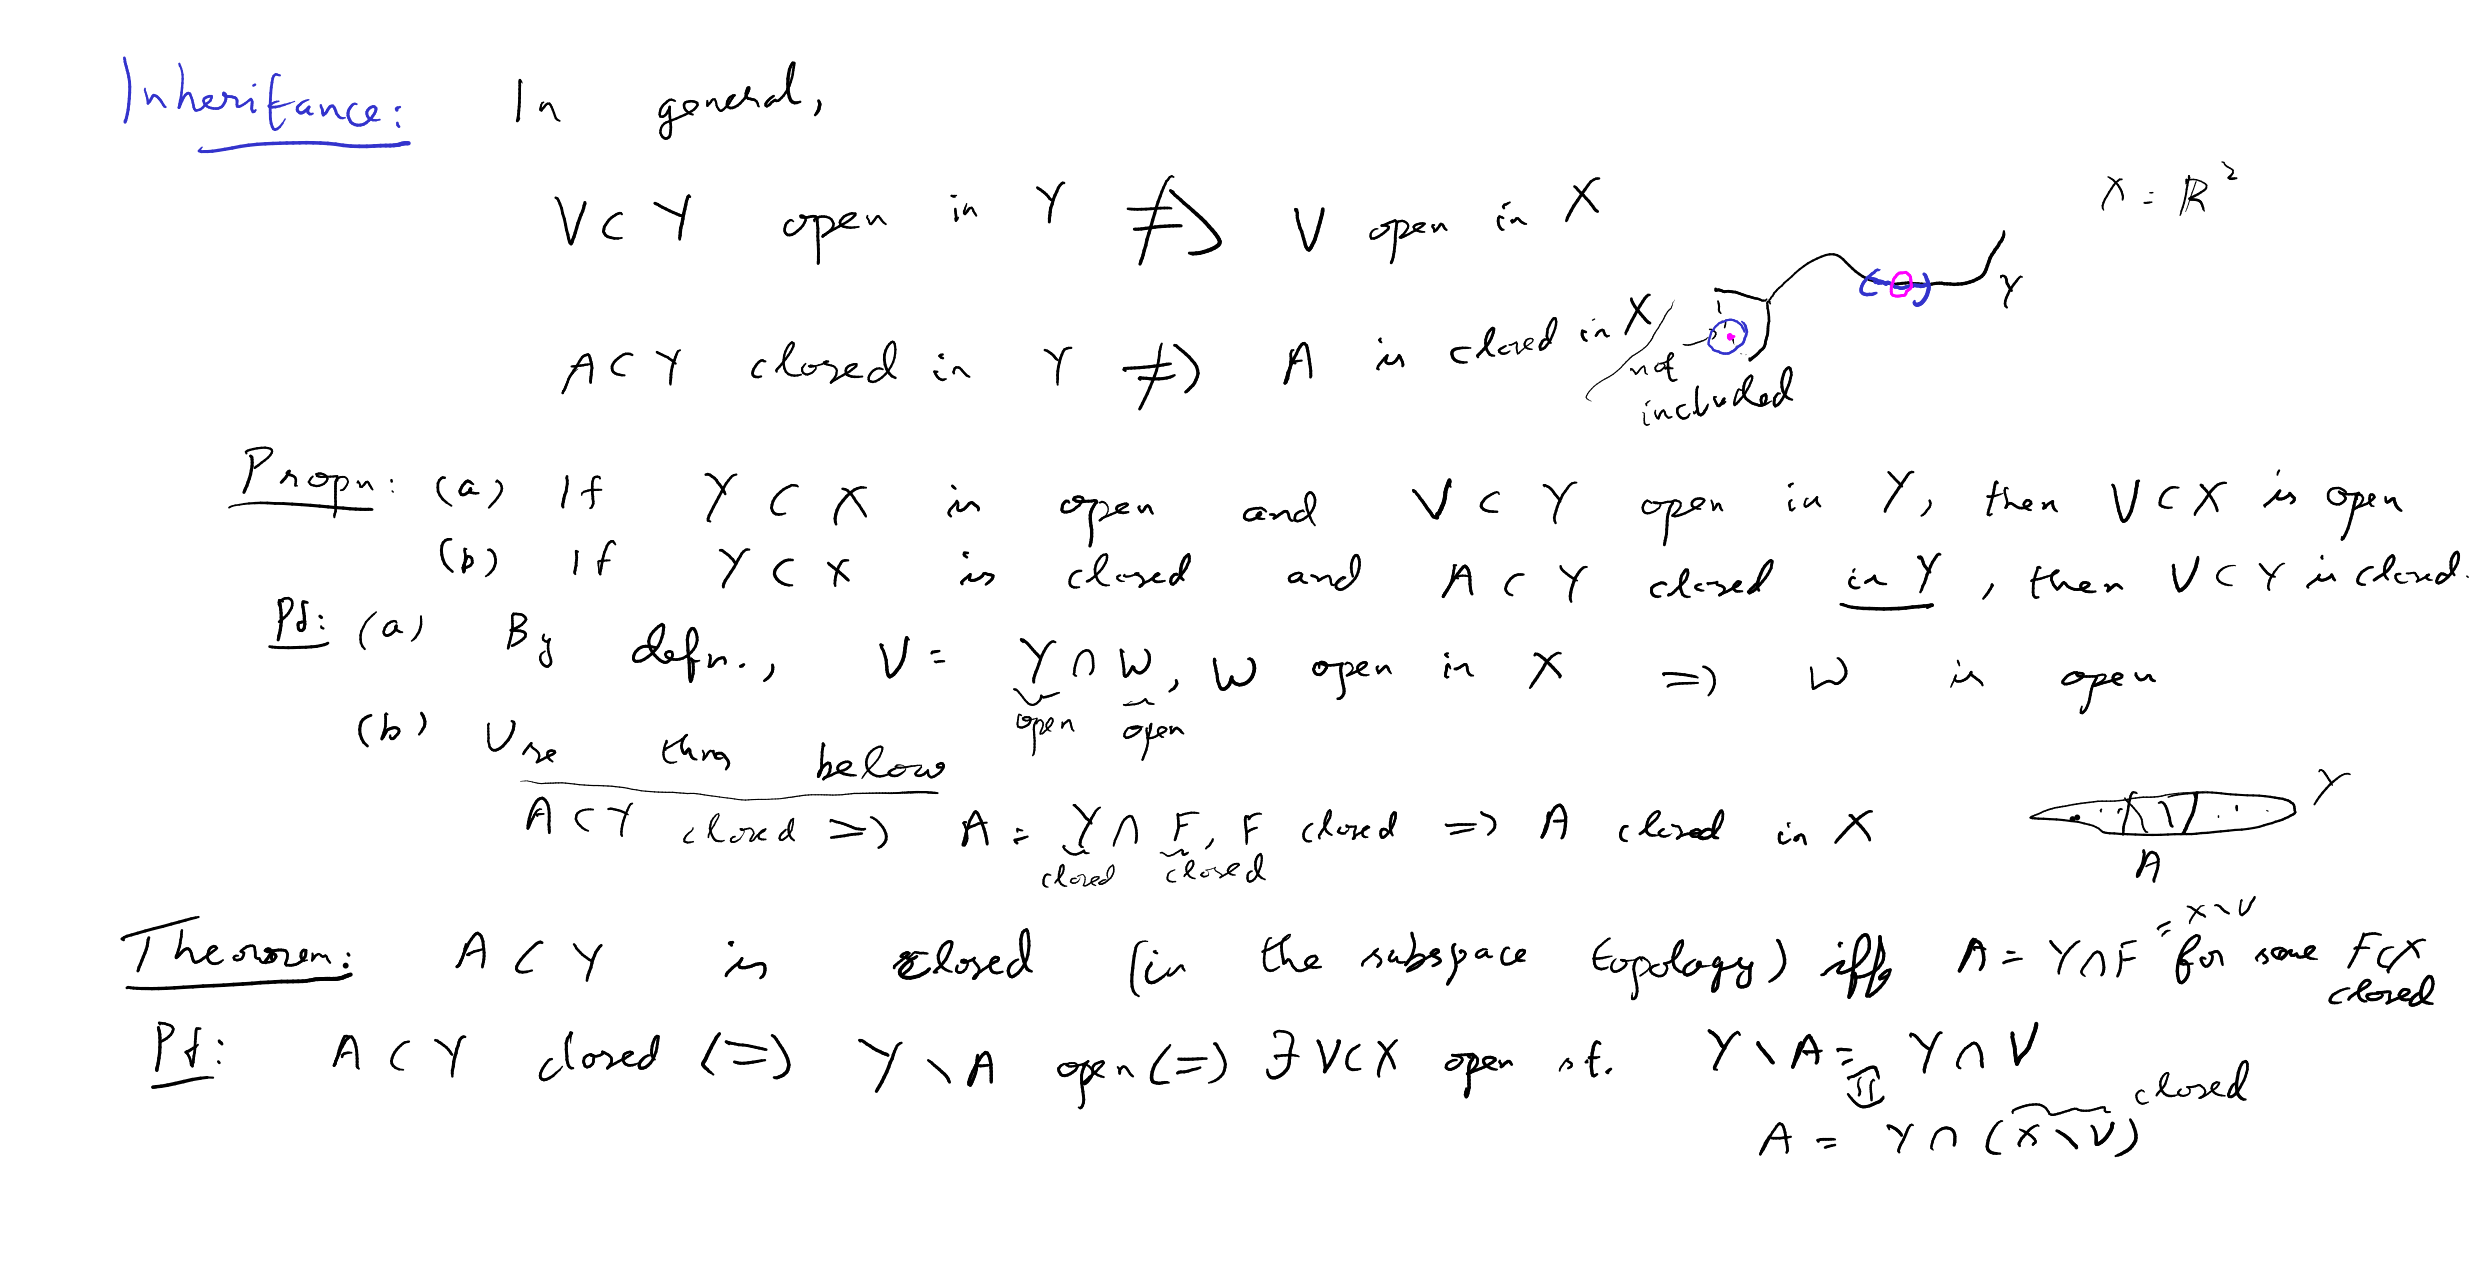 Inheritance: In general,
V ⊂ Y open in Y ≠> V open in X
X = R²
Y
A ⊂ Y closed in Y ≠> A is closed in X
not included
Propn: (a) If Y ⊂ X is open and V ⊂ Y open in Y, then V ⊂ X is open
(b) If Y ⊂ X is closed and A ⊂ Y closed in Y, then V ⊂ Y is closed.
Pf: (a) By defn., V = Y ∩ W, W open in X => W is open
open open
(b) Use thm below
A ⊂ Y closed => A = Y ∩ F, F closed => A closed in X
closed closed
Y
A
Theorem: A ⊂ Y is closed (in the subspace topology) iff A = Y ∩ F for some F ⊂ X closed
= X \ V
Pf: A ⊂ Y closed <=> Y \ A open <=> ∃ V ⊂ X open st. Y \ A = Y ∩ V
⇕
A = Y ∩ (X \ V) closed